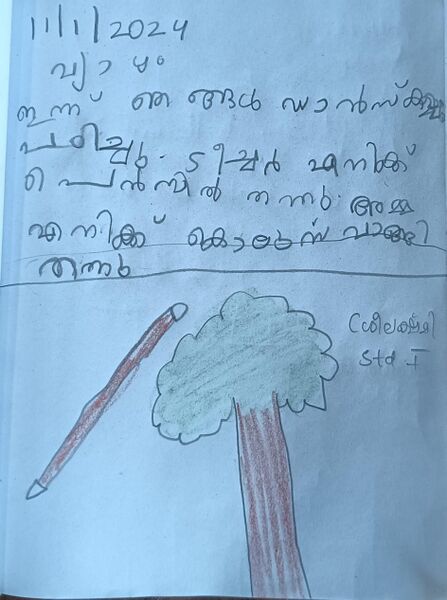 11/1/2024
വ്യാഴം
ഇന്ന് ഞങ്ങൾ ഡാൻസ്
പഠിച്ചു. ടീച്ചർ എനിക്ക്
പെൻസിൽ തന്നു. അമ്മ
എനിക്ക് കൊലുസ് വാങ്ങി
തന്നു
ശ്രീലക്ഷ്മി
Std I